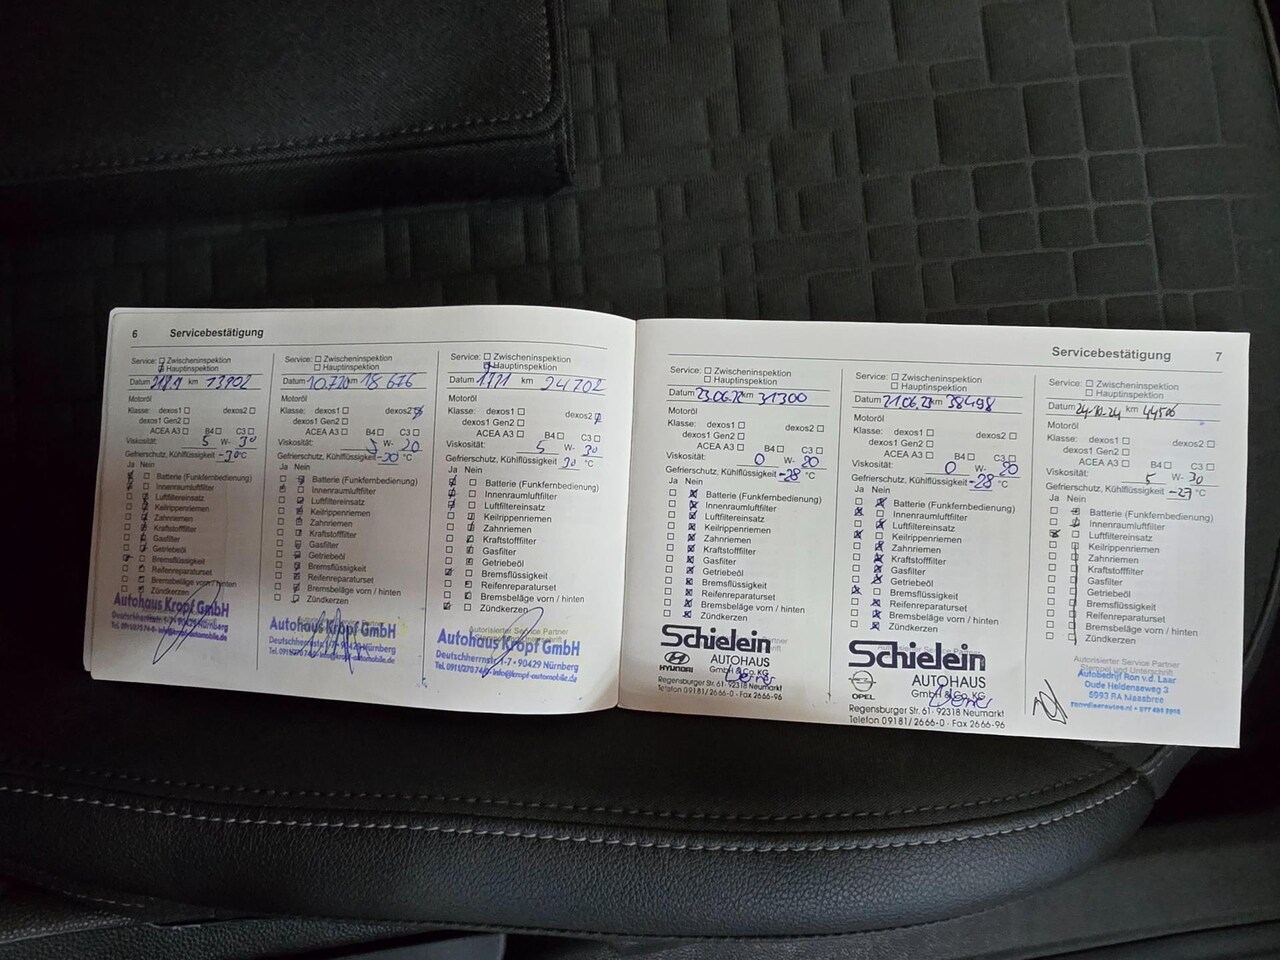 6 Servicebestätigung
Service: Zwischeninspektion
Hauptinspektion
Datum km 13902
Motoröl
Klasse: dexos1 dexos2
dexos1 Gen2
ACEA A3 B4 C3
Viskosität: 5 W- 30
Gefrierschutz, Kühlflüssigkeit -30 °C
Ja Nein
Batterie (Funkfernbedienung)
Innenraumluftfilter
Luftfiltereinsatz
Keilrippenriemen
Zahnriemen
Kraftstofffilter
Gasfilter
Getriebeöl
Bremsflüssigkeit
Reifenreparaturset
Bremsbeläge vorn / hinten
Zündkerzen
Autohaus Kropf GmbH
Deutschherrnstr. 1-7 • 90429 Nürnberg
Service: Zwischeninspektion
Hauptinspektion
Datum km 18 676
Motoröl
Klasse: dexos1 dexos2
dexos1 Gen2
ACEA A3 B4 C3
Viskosität: 5 W- 20
Gefrierschutz, Kühlflüssigkeit °C
Ja Nein
Batterie (Funkfernbedienung)
Innenraumluftfilter
Luftfiltereinsatz
Keilrippenriemen
Zahnriemen
Kraftstofffilter
Gasfilter
Getriebeöl
Bremsflüssigkeit
Reifenreparaturset
Bremsbeläge vorn / hinten
Zündkerzen
Autohaus Kropf GmbH
Deutschherrnstr. 1-7 • 90429 Nürnberg
Service: Zwischeninspektion
Hauptinspektion
Datum km 24702
Motoröl
Klasse: dexos1 dexos2
dexos1 Gen2
ACEA A3 B4 C3
Viskosität: 5 W- 30
Gefrierschutz, Kühlflüssigkeit 30 °C
Ja Nein
Batterie (Funkfernbedienung)
Innenraumluftfilter
Luftfiltereinsatz
Keilrippenriemen
Zahnriemen
Kraftstofffilter
Gasfilter
Getriebeöl
Bremsflüssigkeit
Reifenreparaturset
Bremsbeläge vorn / hinten
Zündkerzen
Autorisierter Service Partner
Autohaus Kropf GmbH
Deutschherrnstr. 1-7 • 90429 Nürnberg
Tel. 0911/270 74-0 • info@kropf-automobile.de
Servicebestätigung 7
Service: Zwischeninspektion
Hauptinspektion
Datum 23.06.22 km 31300
Motoröl
Klasse: dexos1 dexos2
dexos1 Gen2
ACEA A3 B4 C3
Viskosität: 0 W- 20
Gefrierschutz, Kühlflüssigkeit -28 °C
Ja Nein
Batterie (Funkfernbedienung)
Innenraumluftfilter
Luftfiltereinsatz
Keilrippenriemen
Zahnriemen
Kraftstofffilter
Gasfilter
Getriebeöl
Bremsflüssigkeit
Reifenreparaturset
Bremsbeläge vorn / hinten
Zündkerzen
Schielein
AUTOHAUS
HYUNDAI GmbH & Co. KG
Regensburger Str. 61 - 92318 Neumarkt
Telefon 09181/2666-0 - Fax 2666-96
Service: Zwischeninspektion
Hauptinspektion
Datum 21.06.23 km 38498
Motoröl
Klasse: dexos1 dexos2
dexos1 Gen2
ACEA A3 B4 C3
Viskosität: 0 W- 20
Gefrierschutz, Kühlflüssigkeit -28 °C
Ja Nein
Batterie (Funkfernbedienung)
Innenraumluftfilter
Luftfiltereinsatz
Keilrippenriemen
Zahnriemen
Kraftstofffilter
Gasfilter
Getriebeöl
Bremsflüssigkeit
Reifenreparaturset
Bremsbeläge vorn / hinten
Zündkerzen
Schielein
AUTOHAUS
OPEL GmbH & Co. KG
Regensburger Str. 61 - 92318 Neumarkt
Telefon 09181/2666-0 - Fax 2666-96
Service: Zwischeninspektion
Hauptinspektion
Datum 24-10-24 km 44506
Motoröl
Klasse: dexos1 dexos2
dexos1 Gen2
ACEA A3 B4 C3
Viskosität: 5 W- 30
Gefrierschutz, Kühlflüssigkeit -27 °C
Ja Nein
Batterie (Funkfernbedienung)
Innenraumluftfilter
Luftfiltereinsatz
Keilrippenriemen
Zahnriemen
Kraftstofffilter
Gasfilter
Getriebeöl
Bremsflüssigkeit
Reifenreparaturset
Bremsbeläge vorn / hinten
Zündkerzen
Autorisierter Service Partner
Stempel und Unterschrift
Autobedrijf Ron v.d. Laar
Oude Heldenseweg 3
5993 RA Maasbree